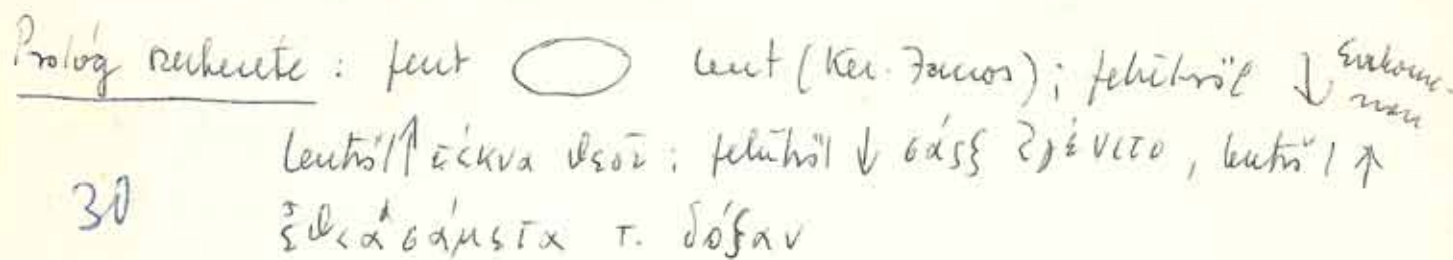 Prológ szerkezete : fent lent (Ker. János); felülről ↓
lentről ↑ τέκνα θεοῦ ; felülről ↓ σάρξ ἐγένετο, lentről ↑
30 ἐθεασάμεθα τ. δόξαν